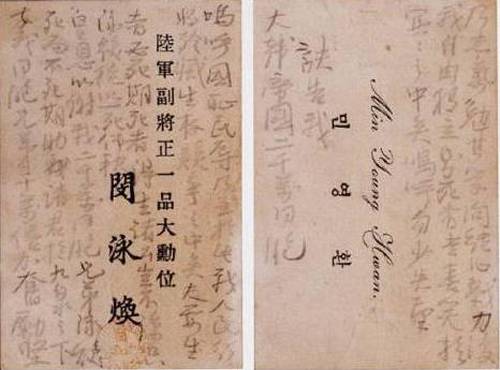 陸軍副將正一品大勳位
閔泳煥
嗚呼國恥民辱乃至於此我人民
將殄滅生存競爭之中矣夫要生
者必死期死者得生諸公豈不諒只
泳煥徒以一死仰報
皇恩以謝我二千萬同胞兄弟泳煥
死而不死期助諸君於九泉之下
幸我同胞兄弟千萬奮勵堅
Min Young Hwan.
민영환
乃志氣勉其學問結心戮力復
我自由獨立死者當喜笑於
冥冥之中矣嗚呼勿少失望
訣告我
大韓帝國二千萬同胞